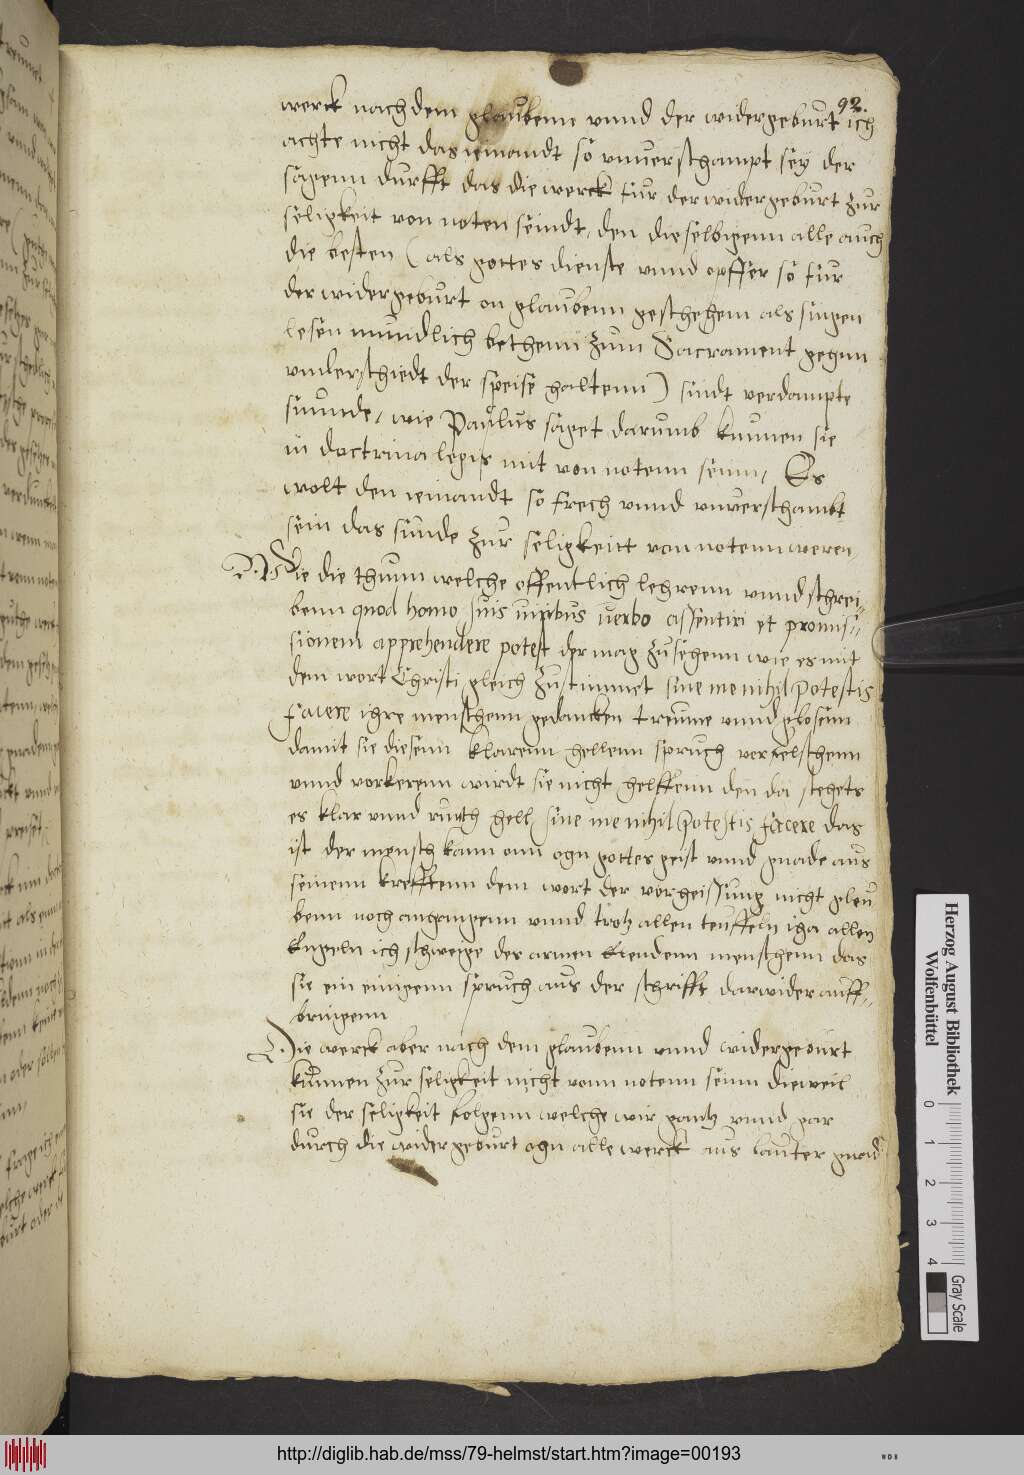 92.
werck nach dem glaubenn vnnd der widergeburt ich
achte nicht das iemandt so vnuerschampt sey der
sagenn durfft das die werck fur der widergeburt zur
seligkeit von noten seindt, den dieselbigenn alle auch
die besten (als gottes dienste vnnd opffer so fur
der widergeburt on glaubenn geschehenn als singen
lesen mundlich bethenn zum Sacrament gegnn
vnderschiedt der speise haltenn) sindt verdampte
sunnde, wie Paulus saget darumb kunnen sie
in doctrina legis nit von notenn seinn, Es
wolt den iemandt so frech vnnd vnverschambt
sein das sunde zur seligkeitt von notenn weren,
Wie die thunn welche offentlich lehrenn vnnd schrei=
benn quod homo suis uiribus uerbo assentiri et promis=
sionem apprehendere potest der mag zusehenn wie es mit
dem wort Christi gleich zustimmet sine me nihil potestis
facere ihre menschenn gedancken treume vnnd glosenn
damit sie diesenn klarenn hellenn spruch verfelschenn
vnnd vorkerenn wirdt sie nicht helffenn den da stehets
es klar vnnd hell, sine me nihil potestis facere das
ist der mensch kann onn ohn gottes geist vnnd gnade aus
seinenn krefftenn dem wort der vorheissung nicht gleu
benn noch anhangenn vnnd trotz allen teuffeln iha allen
Engeln ich schweige der armen Elendenn menschenn das
sie ein einigenn spruch aus der schrifft darwider auff=
bringenn
Die werck aber nach dem glaubenn vnnd widergeburt
kunnen zur seligkeit nicht vonn notenn seinn dieweil
sie der seligkeit folgenn welche wir gantz vnnd gar
durch die widergeburt ohn alle werck aus lauter gnad
Herzog August Bibliothek
Wolfenbüttel
0 1 2 3 4
Gray Scale
http://diglib.hab.de/mss/79-helmst/start.htm?image=00193